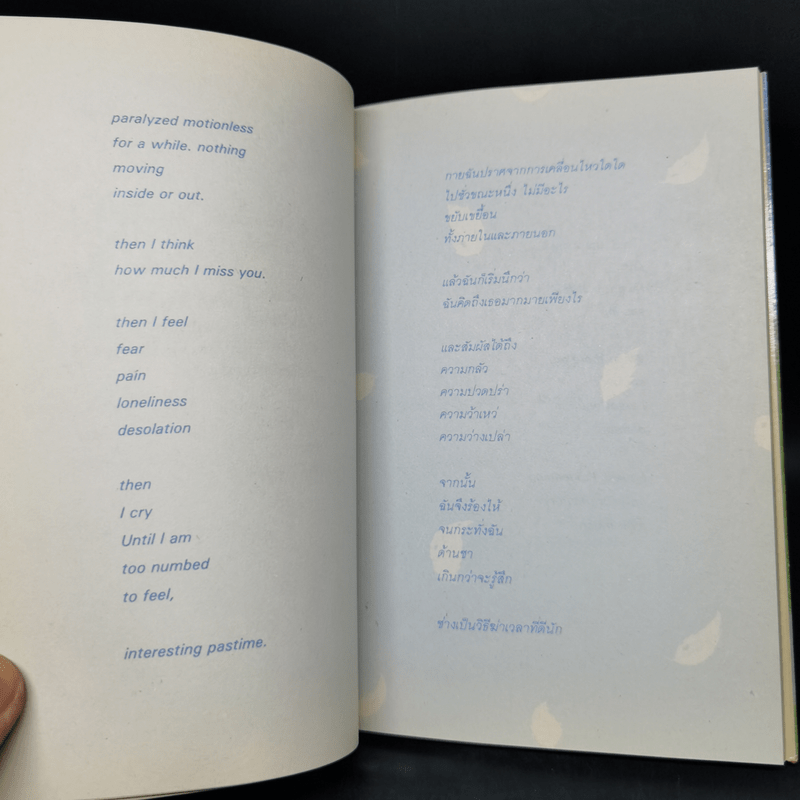 paralyzed motionless
for a while. nothing
moving
inside or out.
then I think
how much I miss you.
then I feel
fear
pain
loneliness
desolation
then
I cry
Until I am
too numbed
to feel,
interesting pastime.
กายฉันปราศจากการเคลื่อนไหวใดใด
ไปชั่วขณะหนึ่ง ไม่มีอะไร
ขยับเขยื้อน
ทั้งภายในและภายนอก
แล้วฉันก็เริ่มนึกว่า
ฉันคิดถึงเธอมากมายเพียงไร
และสัมผัสได้ถึง
ความกลัว
ความปวดปร่า
ความว้าเหว่
ความว่างเปล่า
จากนั้น
ฉันจึงร้องไห้
จนกระทั่งฉัน
ด้านชา
เกินกว่าจะรู้สึก
ช่างเป็นวิธีฆ่าเวลาที่ดีนัก